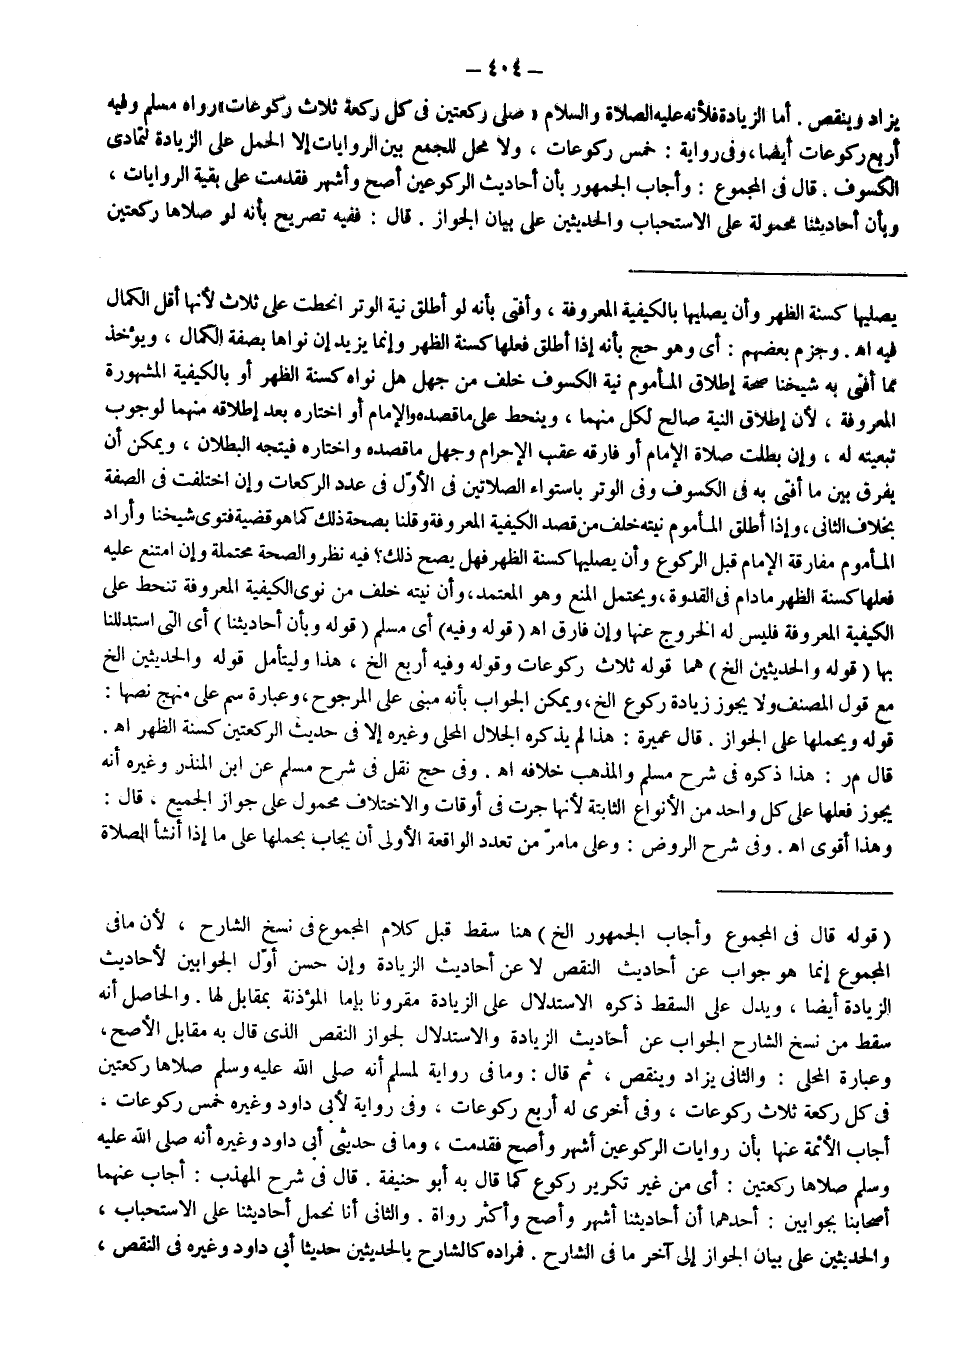 – ٤٠٤ –
يزاد وينقص . أما الزيادة فلأنه عليه الصلاة والسلام « صلى ركعتين فى كل ركعة ثلاث ركوعات» رواه مسلم وفيه
أربع ركوعات أيضا، وفى رواية : خمس ركوعات ، ولا محل للجمع بين الروايات إلا الحمل على الزيادة لتمادى
الكسوف . قال فى المجموع : وأجاب الجمهور بأن أحاديث الركوعين أصح وأشهر فقدمت على بقية الروايات ،
وبأن أحاديثنا محمولة على الاستحباب والحديثين على بيان الجواز . قال : ففيه تصريح بأنه لو صلاها ركعتين
يصليها كسنة الظهر وأن يصليها بالكيفية المعروفة ، وأفتى بأنه لو أطلق نية الوتر انحطت على ثلاث لأنها أقل الكمال
فيه اه . وجزم بعضهم : أى وهو حج بأنه إذا أطلق فعلها كسنة الظهر وإنما يزيد إن نواها بصفة الكمال ، ويؤخذ
مما أفتى به شيخنا صحة إطلاق المأموم نية الكسوف خلف من جهل هل نواه كسنة الظهر أو بالكيفية المشهورة
المعروفة ، لأن إطلاق النية صالح لكل منهما ، وينحط على ماقصده والإمام أو اختاره بعد إطلاقه منهما لوجوب
تبعيته له ، وإن بطلت صلاة الإمام أو فارقه عقب الإحرام وجهل ماقصده واختاره فيتجه البطلان ، ويمكن أن
يفرق بين ما أفتى به فى الكسوف وفى الوتر باستواء الصلاتين فى الأوّل فى عدد الركعات وإن اختلفت فى الصفة
بخلاف الثانى، وإذا أطلق المأموم نيته خلف من قصد الكيفية المعروفة وقلنا بصحة ذلك كما هو قضية فتوى شيخنا وأراد
المأموم مفارقة الإمام قبل الركوع وأن يصليها كسنة الظهر فهل يصح ذلك؟ فيه نظر والصحة محتملة وإن امتنع عليه
فعلها كسنة الظهر مادام فى القدوة، ويحتمل المنع وهو المعتمد، وأن نيته خلف من نوى الكيفية المعروفة تنحط على
الكيفية المعروفة فليس له الخروج عنها وإن فارق اه ( قوله وفيه) أى مسلم ( قوله وبأن أحاديثنا ) أى التى استدللنا
بها ( قوله والحديثين الخ ) هما قوله ثلاث ركوعات وقوله وفيه أربع الخ ، هذا وليتأمل قوله والحديثين الخ
مع قول المصنف ولا يجوز زيادة ركوع الخ، ويمكن الجواب بأنه مبنى على المرجوح، وعبارة سم على منهج نصها :
قوله ويحملها على الجواز . قال عميرة : هذا لم يذكره الجلال المحلى وغيره إلا فى حديث الركعتين كسنة الظهر اه .
قال مر : هذا ذكره فى شرح مسلم والمذهب خلافه اه . وفى حج نقل فى شرح مسلم عن ابن المنذر وغيره أنه
يجوز فعلها على كل واحد من الأنواع الثابتة لأنها جرت فى أوقات والاختلاف محمول على جواز الجميع ، قال :
وهذا أقوى اه . وفى شرح الروض : وعلى مامرّ من تعدد الواقعة الأولى أن يجاب بحملها على ما إذا أنشأ الصلاة
( قوله قال فى المجموع وأجاب الجمهور الخ ) هنا سقط قبل كلام المجموع فى نسخ الشارح ، لأن مافى
المجموع إنما هو جواب عن أحاديث النقص لا عن أحاديث الزيادة وإن حسن أوّل الجوابين لأحاديث
الزيادة أيضا ، ويدل على السقط ذكره الاستدلال على الزيادة مقرونا بإما المؤذنة بمقابل لها . والحاصل أنه
سقط من نسخ الشارح الجواب عن أحاديث الزيادة والاستدلال لجواز النقص الذى قال به مقابل الأصح ،
وعبارة المحلى : والثانى يزاد وينقص ، ثم قال : وما فى رواية لمسلم أنه صلى الله عليه وسلم صلاها ركعتين
فى كل ركعة ثلاث ركوعات ، وفى أخرى له أربع ركوعات ، وفى رواية لأبى داود وغيره خمس ركوعات ،
أجاب الأئمة عنها بأن روايات الركوعين أشهر وأصح فقدمت ، وما فى حديثى أبى داود وغيره أنه صلى الله عليه
وسلم صلاها ركعتين : أى من غير تكرير ركوع كما قال به أبو حنيفة . قال فى شرح المهذب : أجاب عنهما
أصحابنا بجوابين : أحدهما أن أحاديثنا أشهر وأصح وأكثر رواة . والثانى أنا نحمل أحاديثنا على الاستحباب ،
والحديثين على بيان الجواز إلى آخر ما فى الشارح . فمراده كالشارح بالحديثين حديثا أبى داود وغيره فى النقص ،